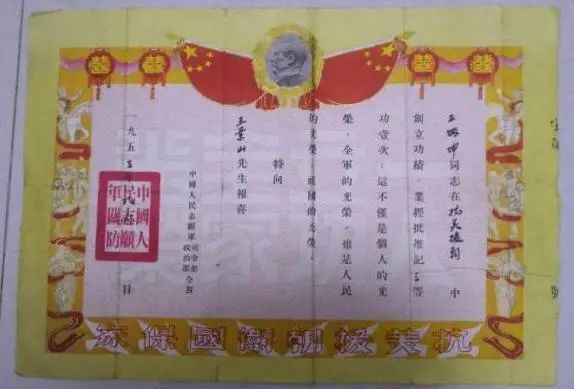 同志在抗美援朝中
創立功績，業經批准記三等
功壹次；這不僅是個人的光
榮，全軍的光榮，也是人民
的光榮，祖國的光榮。
特向
王業山先生報喜
中國人民志願軍司令部
政治部全賀
一九五三年
日
中國人
民志願
軍國防
抗美援朝衛國保家